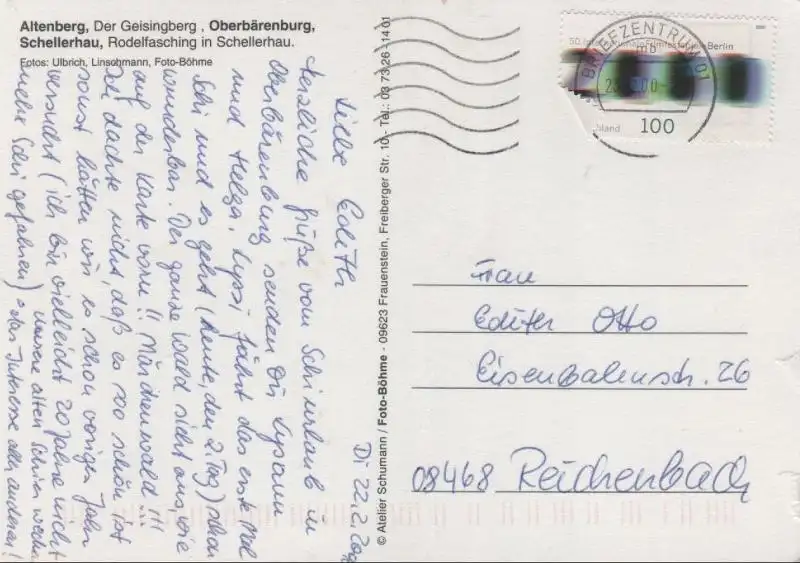 Altenberg, Der Geisingberg , Oberbärenburg,
Schellerhau, Rodelfasching in Schellerhau.
Fotos: Ulbrich, Linsohmann, Foto-Böhme
Di 22.2.
Liebe Edith
herzliche Grüße vom Schiurlaub in
Oberbärenburg senden Dir
und Helga. fährt das erste Mal
Schi und es geht (heute, den 2. Tag) schon
wunderbar. Der ganze Wald sieht aus wie
auf der Karte vorn!! Märchenwald!!!
Ich dachte nicht, daß es so schön ist
sonst hätten wir es schon voriges Jahr
versucht (ich bin vielleicht 20 Jahre nicht
mehr Schi gefahren) unsere alten Schier
das Interesse aller anderen!
© Atelier Schumann / Foto-Böhme - 09623 Frauenstein, Freiberger Str. 10 - Tel.: 03 73 26 - 14 01
BRIEFZENTRUM 01
mb
50 Jahre Berlin
hland
100
Frau
Edith Otto
Eisenbahnstr. 26
08468 Reichenbach